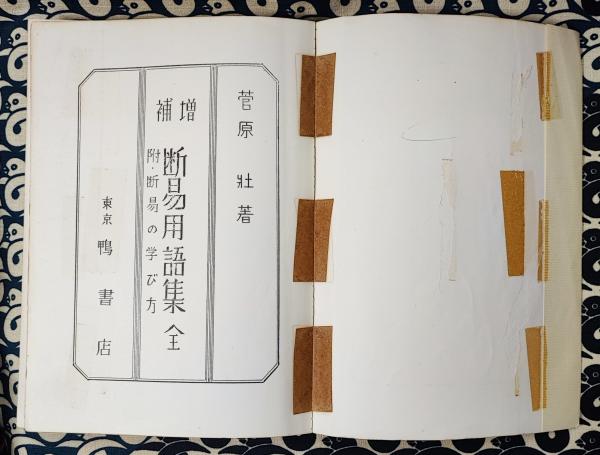 菅原壯著
増補
断易用語集 全
附・断易の学び方
東京 鴨書店